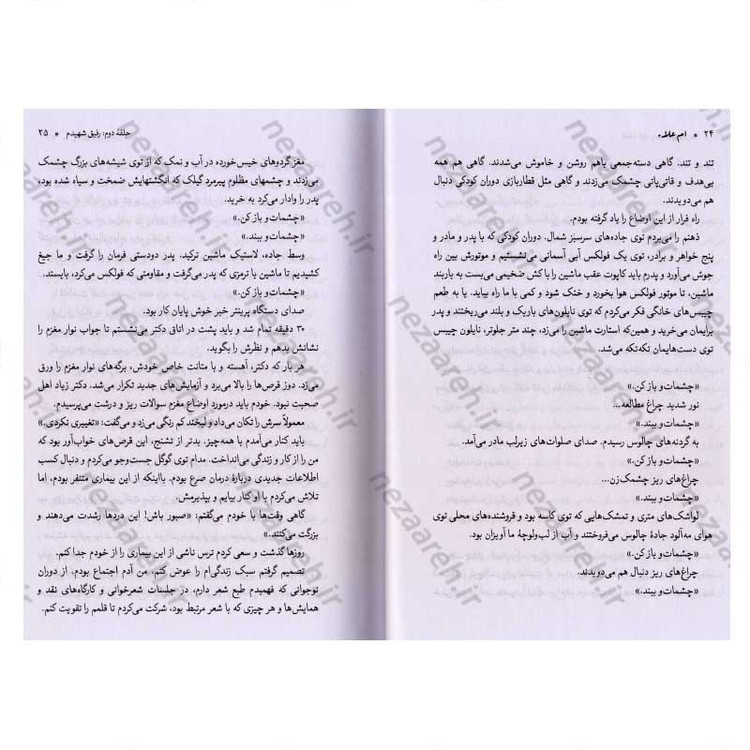 ۲۴ * ام علاء
تند و تند. گاهی دسته‌جمعی باهم روشن و خاموش می‌شدند. گاهی هم همه
بی‌هدف و قاتی‌پاتی چشمک می‌زدند و گاهی مثل قطاربازی دوران کودکی دنبال
هم می‌دویدند.
راه فرار از این اوضاع را یاد گرفته بودم.
ذهنم را می‌بردم توی جاده‌های سرسبز شمال. دوران کودکی که با پدر و مادر و
پنج خواهر و برادر، توی یک فولکس آبی آسمانی می‌نشستیم و موتورش بین راه
جوش می‌آورد و پدرم باید کاپوت عقب ماشین را با کش ضخیمی می‌بست به باربند
ماشین، تا موتور فولکس هوا بخورد و خنک شود و کمی با ما راه بیاید. یا به طعم
چیپس‌های خانگی فکر می‌کردم که توی نایلون‌های باریک و بلند می‌ریختند و پدر
برایمان می‌خرید و همین‌که استارت ماشین را می‌زد، چند متر جلوتر، نایلون چیپس
توی دست‌هایمان تکه‌تکه می‌شد.
«چشمات و باز کن.»
نور شدید چراغ مطالعه...
«چشمات و ببند.»
به گردنه‌های چالوس رسیدم. صدای صلوات‌های زیرلب مادر می‌آمد.
«چشمات و باز کن.»
چراغ‌های ریز چشمک‌زن...
«چشمات و ببند.»
لواشک‌های متری و تمشک‌هایی که توی کاسه بود و فروشنده‌های محلی توی
هوای مه‌آلود جادهٔ چالوس می‌فروختند و آب از لب‌ولوچهٔ ما آویزان بود.
«چشمات و باز کن.»
چراغ‌های ریز دنبال هم می‌دویدند.
«چشمات و ببند.»
حلقهٔ دوم: رفیق شهیدم * ۲۵
مغز گردوهای خیس‌خورده در آب و نمک که از توی شیشه‌های بزرگ چشمک
می‌زدند و چشمهای مظلوم پیرمرد گیلک که انگشتهایش ضمخت و سیاه شده بود،
پدر را وادار می‌کرد به خرید.
«چشمات و باز کن.»
«چشمات و ببند.»
وسط جاده، لاستیک ماشین ترکید. پدر دودستی فرمان را گرفت و ما جیغ
کشیدیم تا ماشین با ترمزی که پدر می‌گرفت و مقاومتی که فولکس می‌کرد، بایستد.
«چشمات و باز کن.»
صدای دستگاه پرینتر خبر خوش پایان کار بود.
۳۰ دقیقه تمام شد و باید پشت در اتاق دکتر می‌نشستم تا جواب نوار مغزم را
نشانش بدهم و نظرش را بگوید.
هر بار که دکتر، آهسته و با متانت خاص خودش، برگه‌های نوار مغزم را ورق
می‌زد، دوز قرص‌ها را بالا می‌برد و آزمایش‌های جدید تکرار می‌شد. دکتر زیاد اهل
صحبت نبود. خودم باید درمورد اوضاع مغزم سوالات ریز و درشت می‌پرسیدم.
معمولاً سرش را تکان می‌داد و لبخند کم رنگی می‌زد و می‌گفت: «تغییری نکردی.»
باید کنار می‌آمدم با همه‌چیز. بدتر از تشنج، این قرص‌های خواب‌آور بود که
من را از کار و زندگی می‌انداخت. مدام توی گوگل جست‌وجو می‌کردم و دنبال کسب
اطلاعات جدیدی دربارهٔ درمان صرع بودم. بااینکه از این بیماری متنفر بودم، اما
تلاش می‌کردم با او کنار بیایم و بپذیرمش.
گاهی وقت‌ها با خودم می‌گفتم: «صبور باش! این دردها رشدت می‌دهند و
بزرگت می‌کنند.»
روزها گذشت و سعی کردم ترس ناشی از این بیماری را از خودم جدا کنم.
تصمیم گرفتم سبک زندگی‌ام را عوض کنم. من آدم اجتماع بودم. از دوران
نوجوانی که فهمیدم طبع شعر دارم، در جلسات شعرخوانی و کارگاه‌های نقد و
همایش‌ها و هر چیزی که با شعر مرتبط بود، شرکت می‌کردم تا قلمم را تقویت کنم.
nezaareh.ir